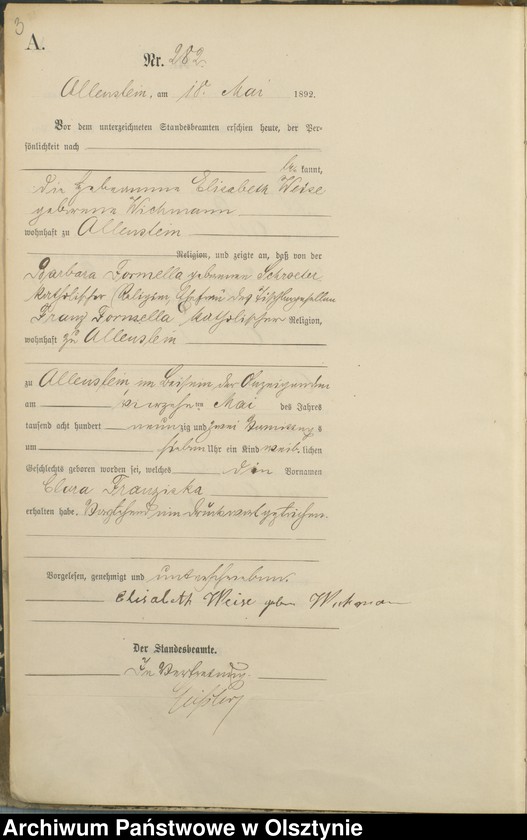 3
A.
Nr. 282.
Allenstein, am 18. Mai 1892.
Vor dem unterzeichneten Standesbeamten erschien heute, der Per-
sönlichkeit nach
be kannt,
die Hebeamme Elisabeth Weise
geborene Wichmann
wohnhaft zu Allenstein
Religion, und zeigte an, daß von der
Barbara Fornsella geborenen Schroeter
katholischer Religion, Ehefrau des Tischlergesellen
Franz Fornsella katholischer Religion,
wohnhaft zu Allenstein
zu Allenstein im Beisein der Anzeigenden
am vierzehnten Mai des Jahres
tausend acht hundert neunzig und zwei Vormittags
um sieben Uhr ein Kind weib lichen
Geschlechts geboren worden sei, welches den Vornamen
Clara Franziska
erhalten habe. Vorstehend ein Druckwort gestrichen.
Vorgelesen, genehmigt und unterschrieben.
Elisabeth Weise geborn Wichmann
Der Standesbeamte.
In Vertretung
Archiwum Państwowe w Olsztynie